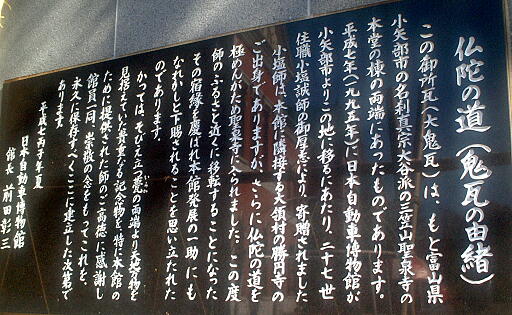 仏陀の道(鬼瓦の由緒)
この御所瓦(大鬼瓦)は、もと富山県
小矢部市の名刹真宗大谷派の三笠山聖泉寺の
本堂の棟の両端にあったものであります。
平成七年(一九九五年)に、日本自動車博物館が
小矢部市よりこの地に移るにあたり、二十七世
住職小塩誠師の御厚志により、寄贈されました
小塩師は、本館に隣接する天領村の勝円寺の
ご出身でありますが、さらに仏陀の道を
極めんがため聖泉寺に入られました。この度
師のふるさと近くに移転することになった
その宿縁を慶ばれ本館発展の一助にも
なれかしと下賜されることを思い立たれた
のであります。
かつては、そびえ立つ甍の両端より天地万物を
見据えていた貴重なる記念物を、特に本館の
ために提供された師のご高徳に感謝し
館員一同、崇敬の念をもってこれを、
永久に保存すべくここに建立した次第で
あります。
平成七丙子年夏
日本自動車博物館
館長 前田彰三